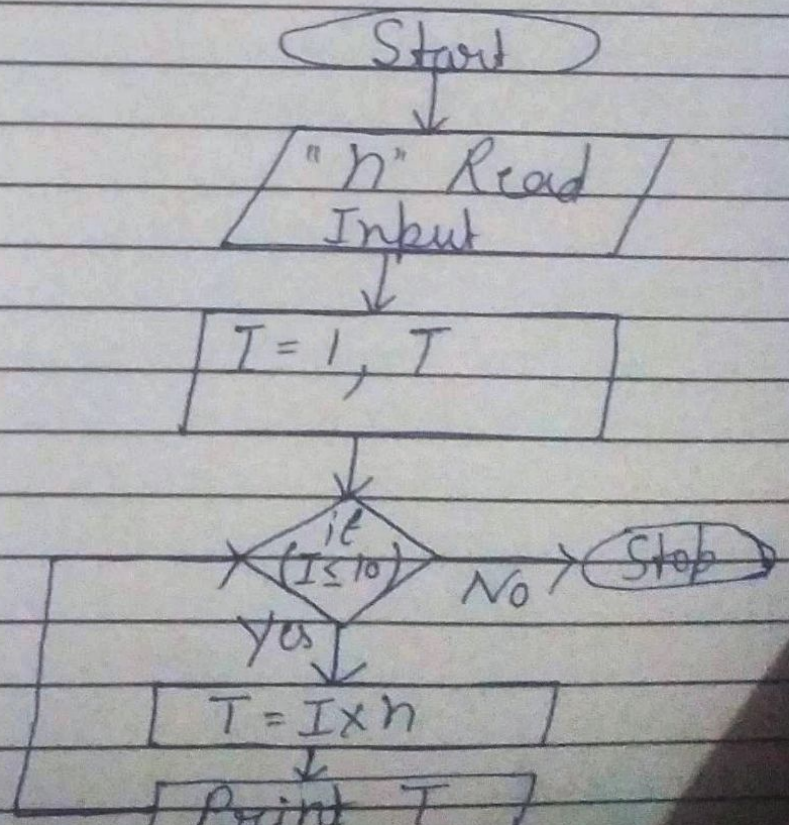 Start
"n" Read
Input
I = 1, T
if
(I ≤ 10)
No
Stop
Yes
T = I x n
Print T